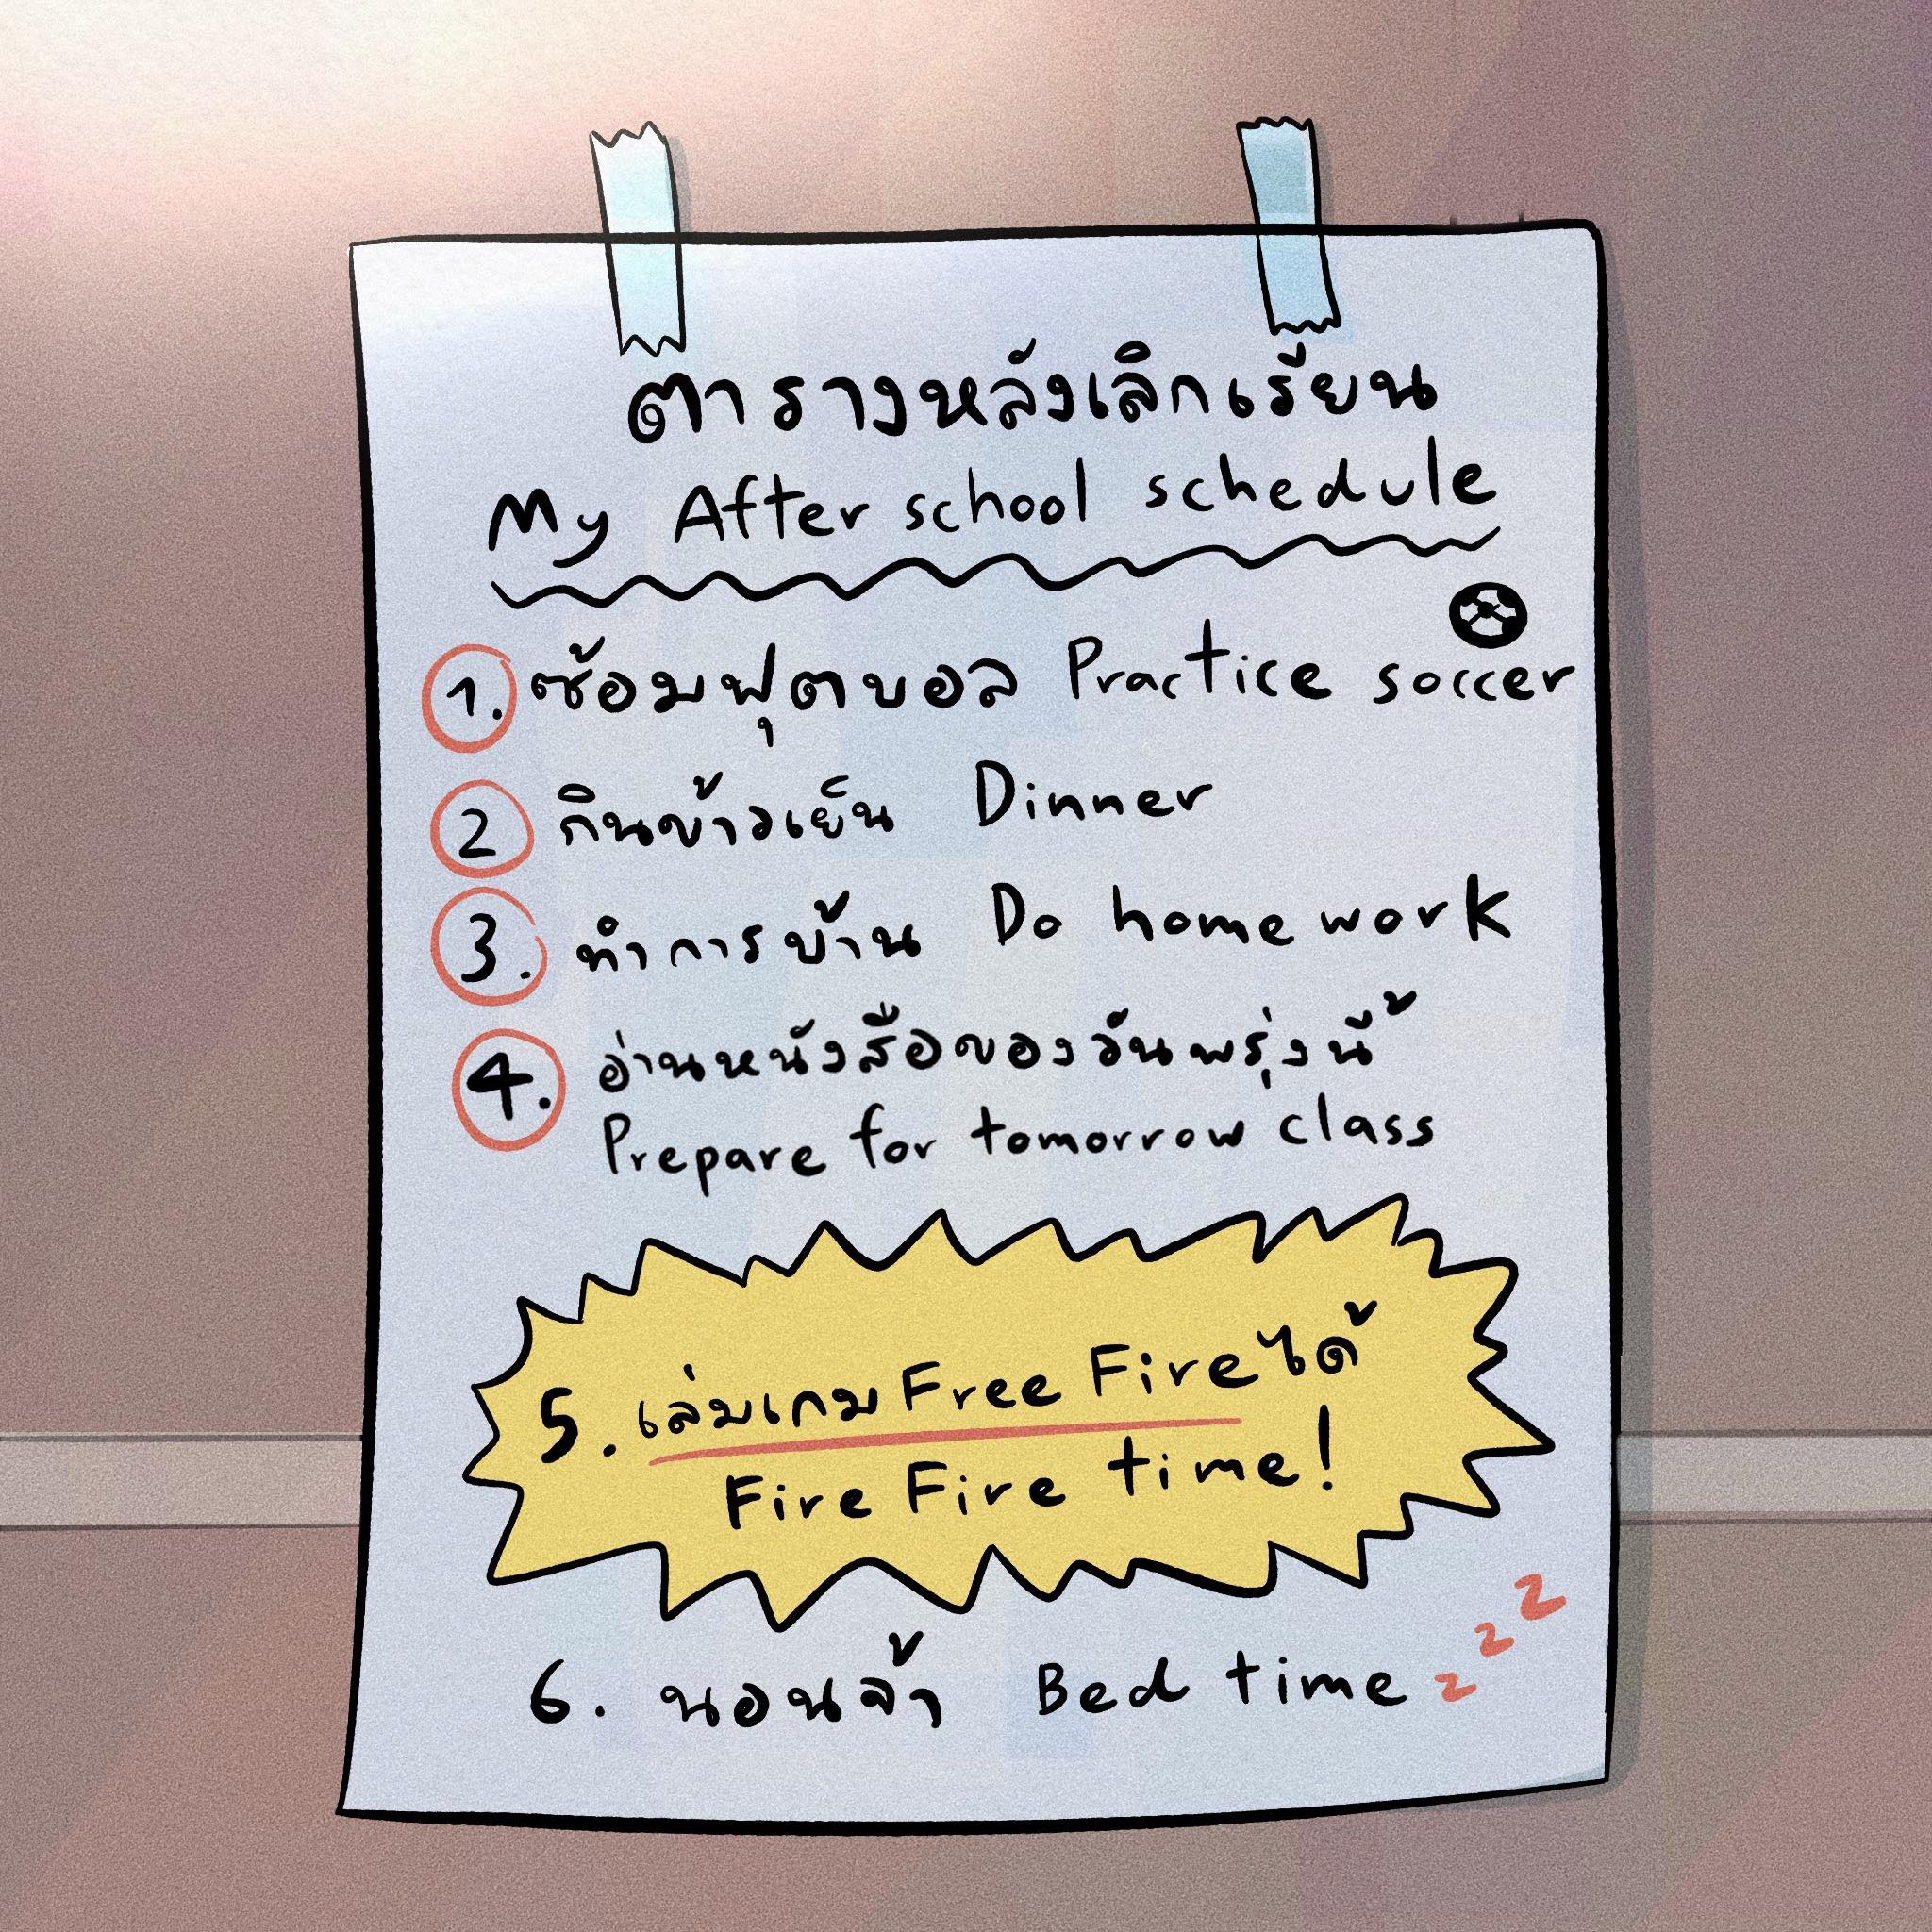 ตารางหลังเลิกเรียน
My After school schedule
1. ซ้อมฟุตบอล Practice soccer
2 กินข้าวเย็น Dinner
3. ทำการบ้าน Do homework
4. อ่านหนังสือของวันพรุ่งนี้
Prepare for tomorrow class
5. เล่มเกม Free Fire ได้
Fire Fire time!
6. นอนจ้า Bed time zzz